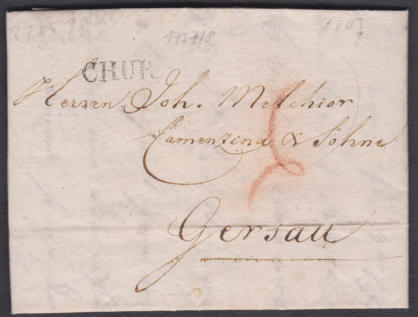 1757/8
1807
CHUR
Herren Joh. Melchior
Camenzind & Söhne
Gersau